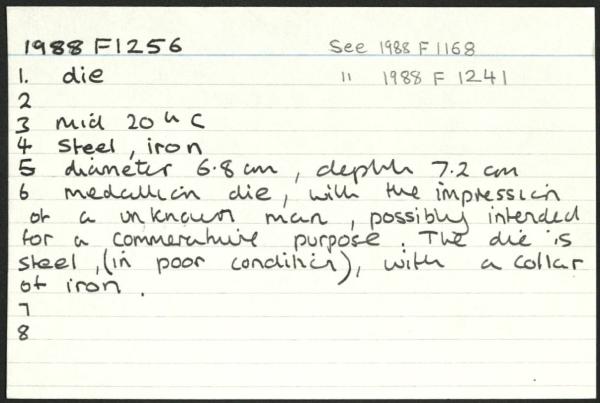 1988 F1256 See 1988 F 1168
1. die " 1988 F 1241
2
3 mid 20th C
4 steel, iron
5 diameter 6.8 cm, depth 7.2 cm
6 medallion die, with the impression
of a unknown man, possibly intended
for a commerative purpose. The die is
steel, (in poor condition), with a collar
of iron.
7
8